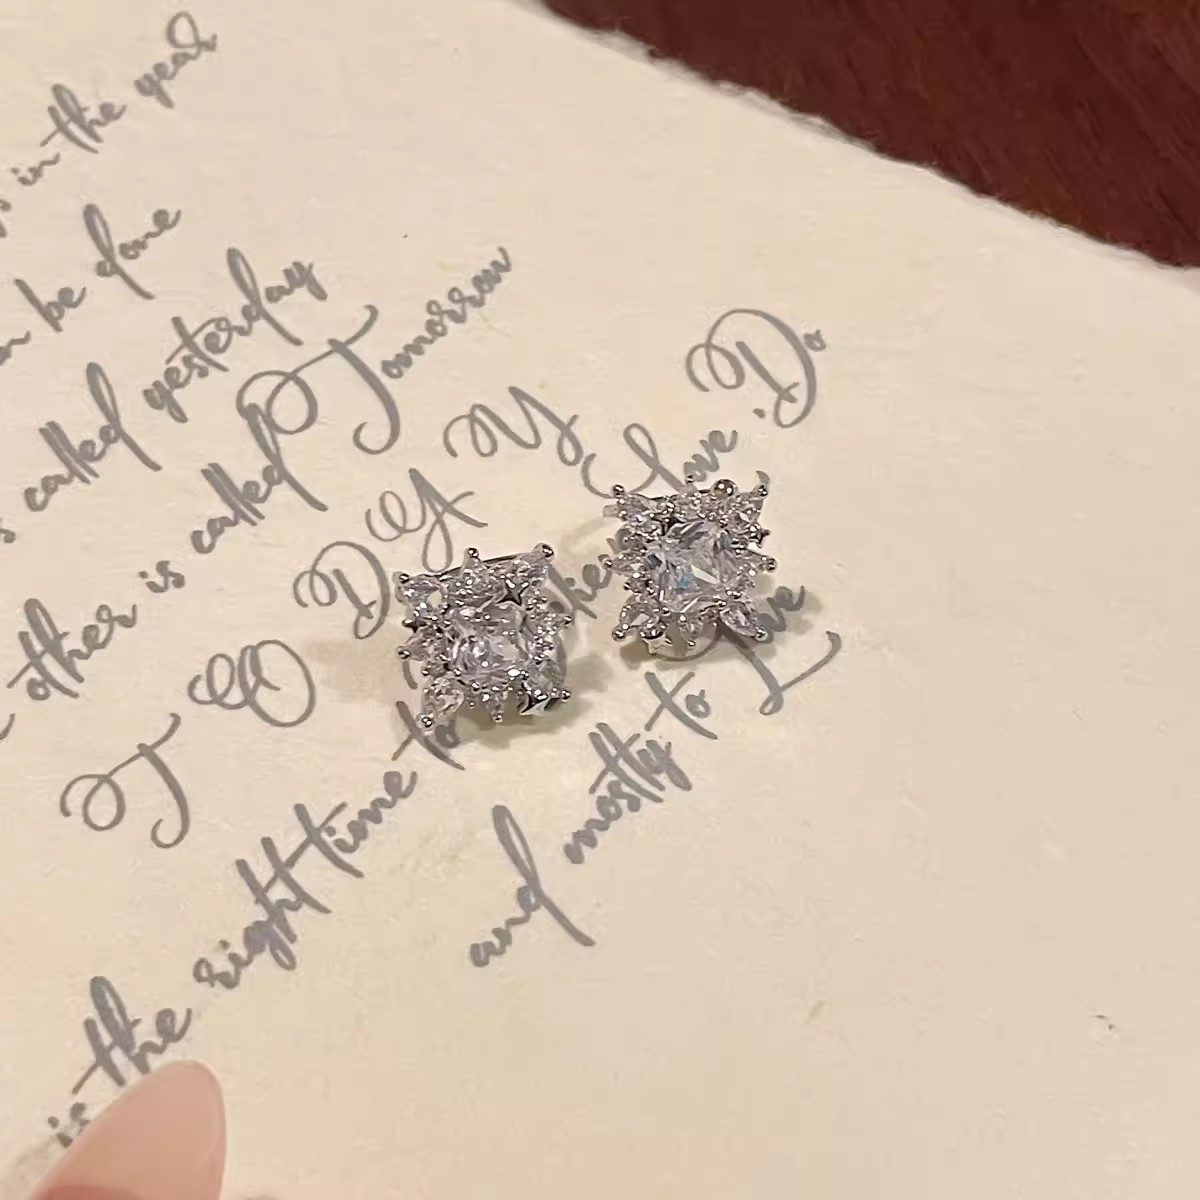 in the year
be done
called yesterday
other is called Tomorrow
TODAY
is the right time to Love, Do
and mostly to Live